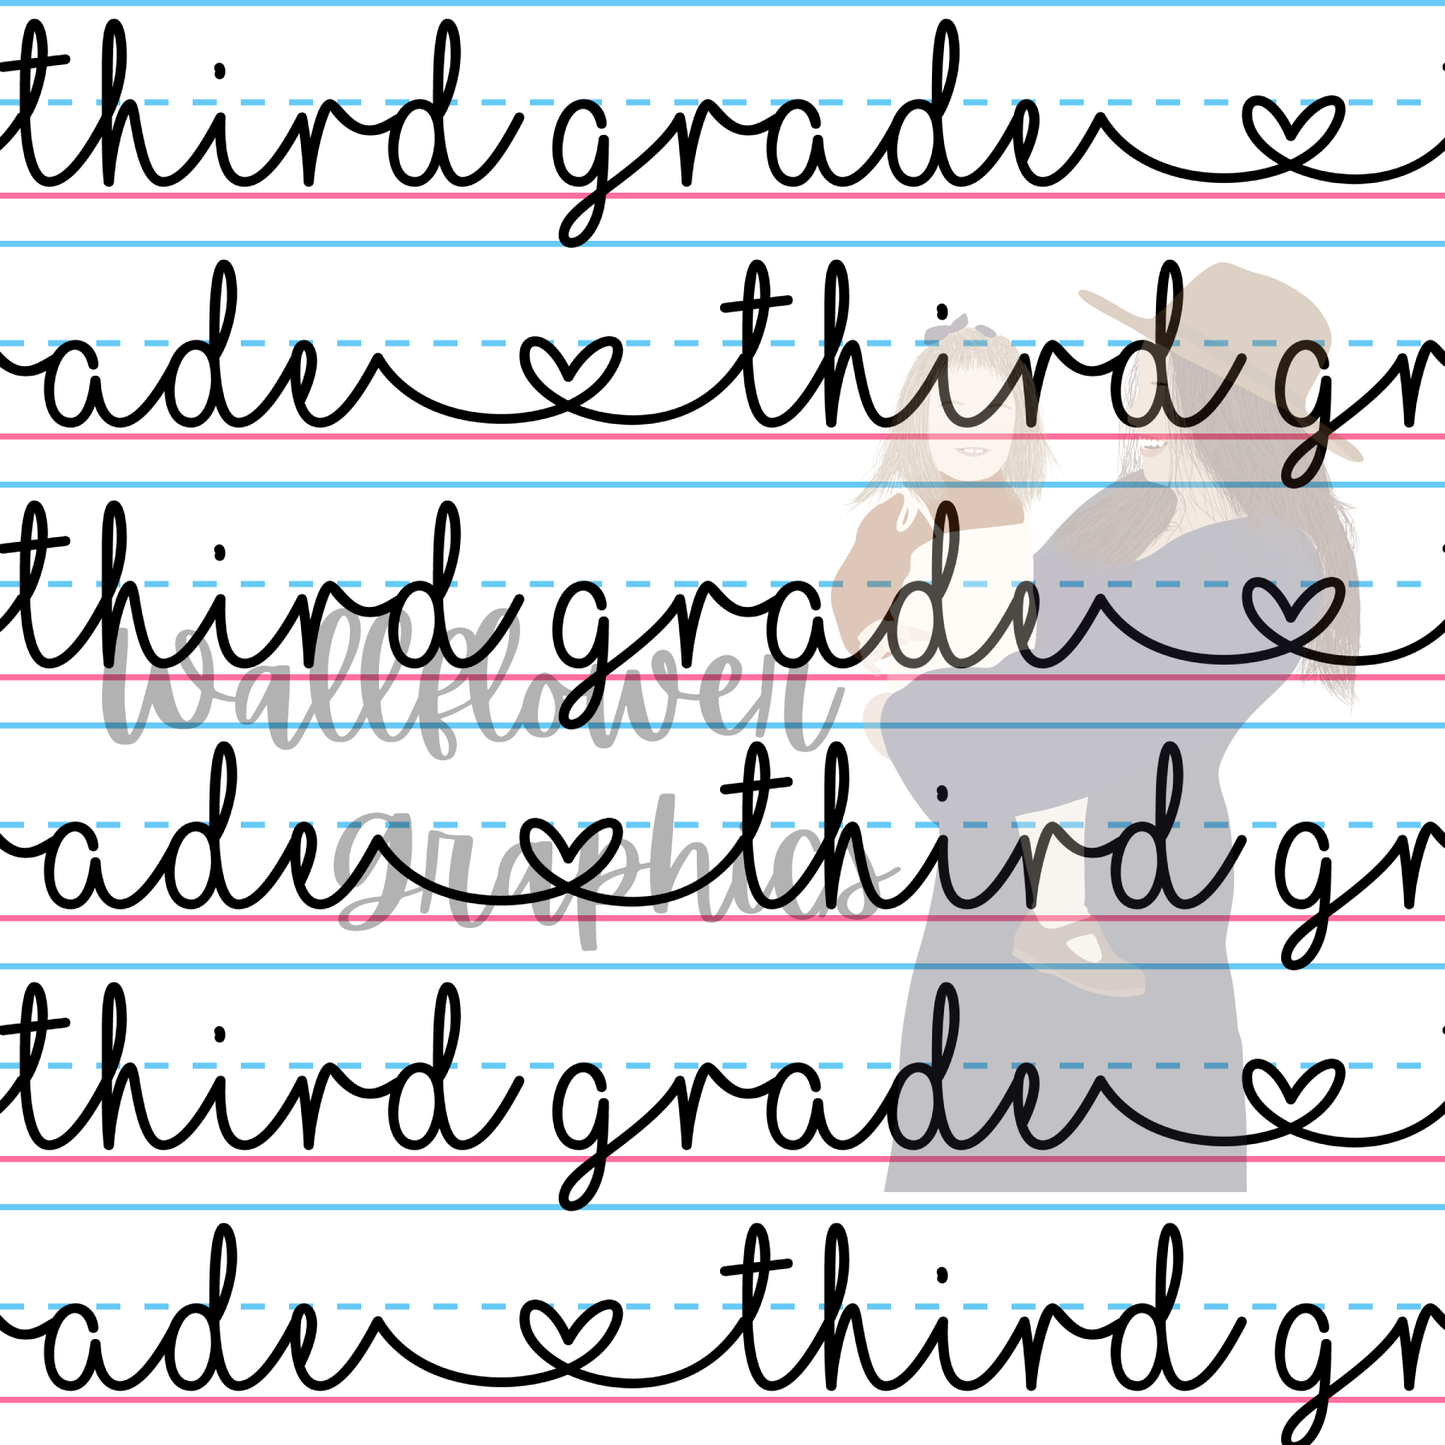 third grade
ade third gr
third grade
wallflower
ade third gr
graphics
third grade
ade third gr